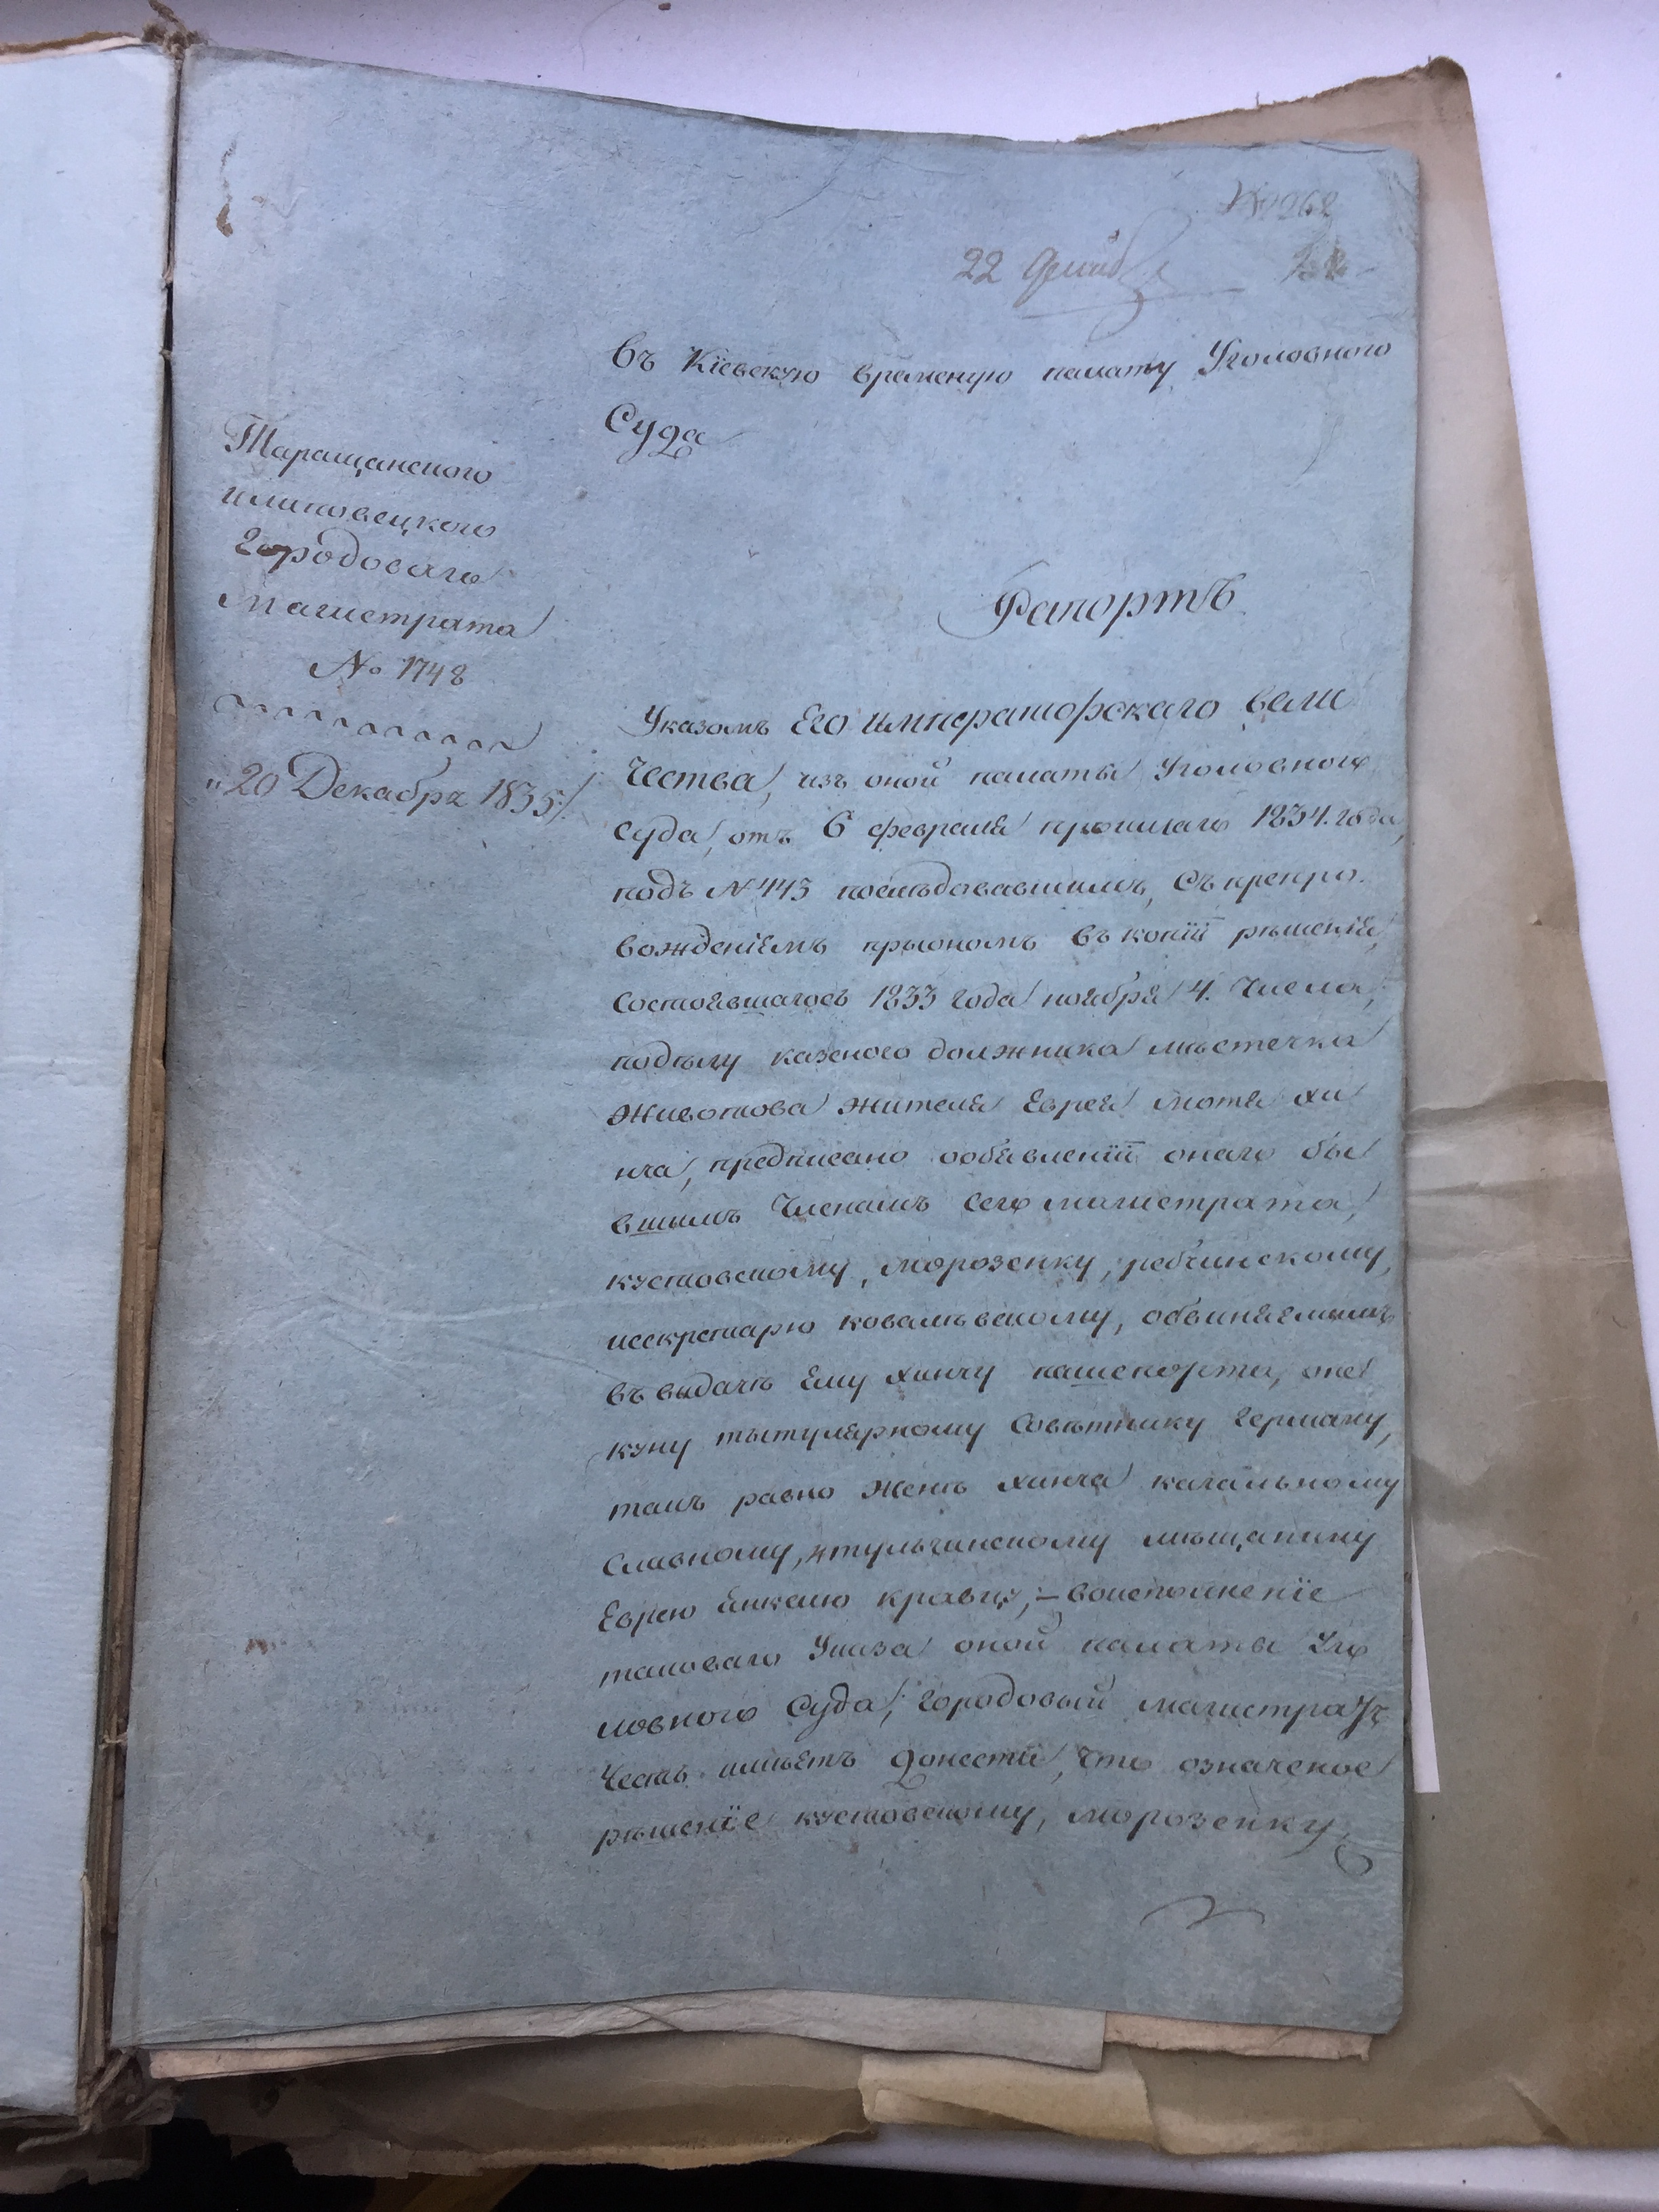 22 Декаб
Въ Кіевскую временую палату Уголовного
Суда
Таращанского
илиповецкого
Городоваго
Магистрата
№ 1748
"20 Декабря 1835:/.
Рапортъ
Указомъ Его императорского вели
чества, изъ оной палаты Уголовного
суда, отъ 6 февраля прошлаго 1834. года,
подъ № 443 последовавшимъ, съ препро
вожденіемъ приономъ въ копіи решенія,
состоявшагось 1833 года ноября 4. числа,
подѣлу казеного должника местечка
Животова жителя Еврея Мотя Хи
нча, предписано ообявленіи онаго бы
вшимъ Членамъ сего магистрата,
кустовскому, морозенку, ребчинскому,
исекретарю ковалъвскому, обвиняемымъ
въ выдаче Ему хинчу пашепорта, опе
куну тытулярному Совѣтнику Герману,
такъ равно Женѣ хинча кагальному
Славному, и тульчинскому мѣщанину
Еврею Янкелю кравцу, – воисполненіе
таковаго Указа оной палаты Уго
ловного Суда, Городовый магистратъ
Честь имѣетъ донести, что означеное
рѣшеніе кустовскому, морозенку,